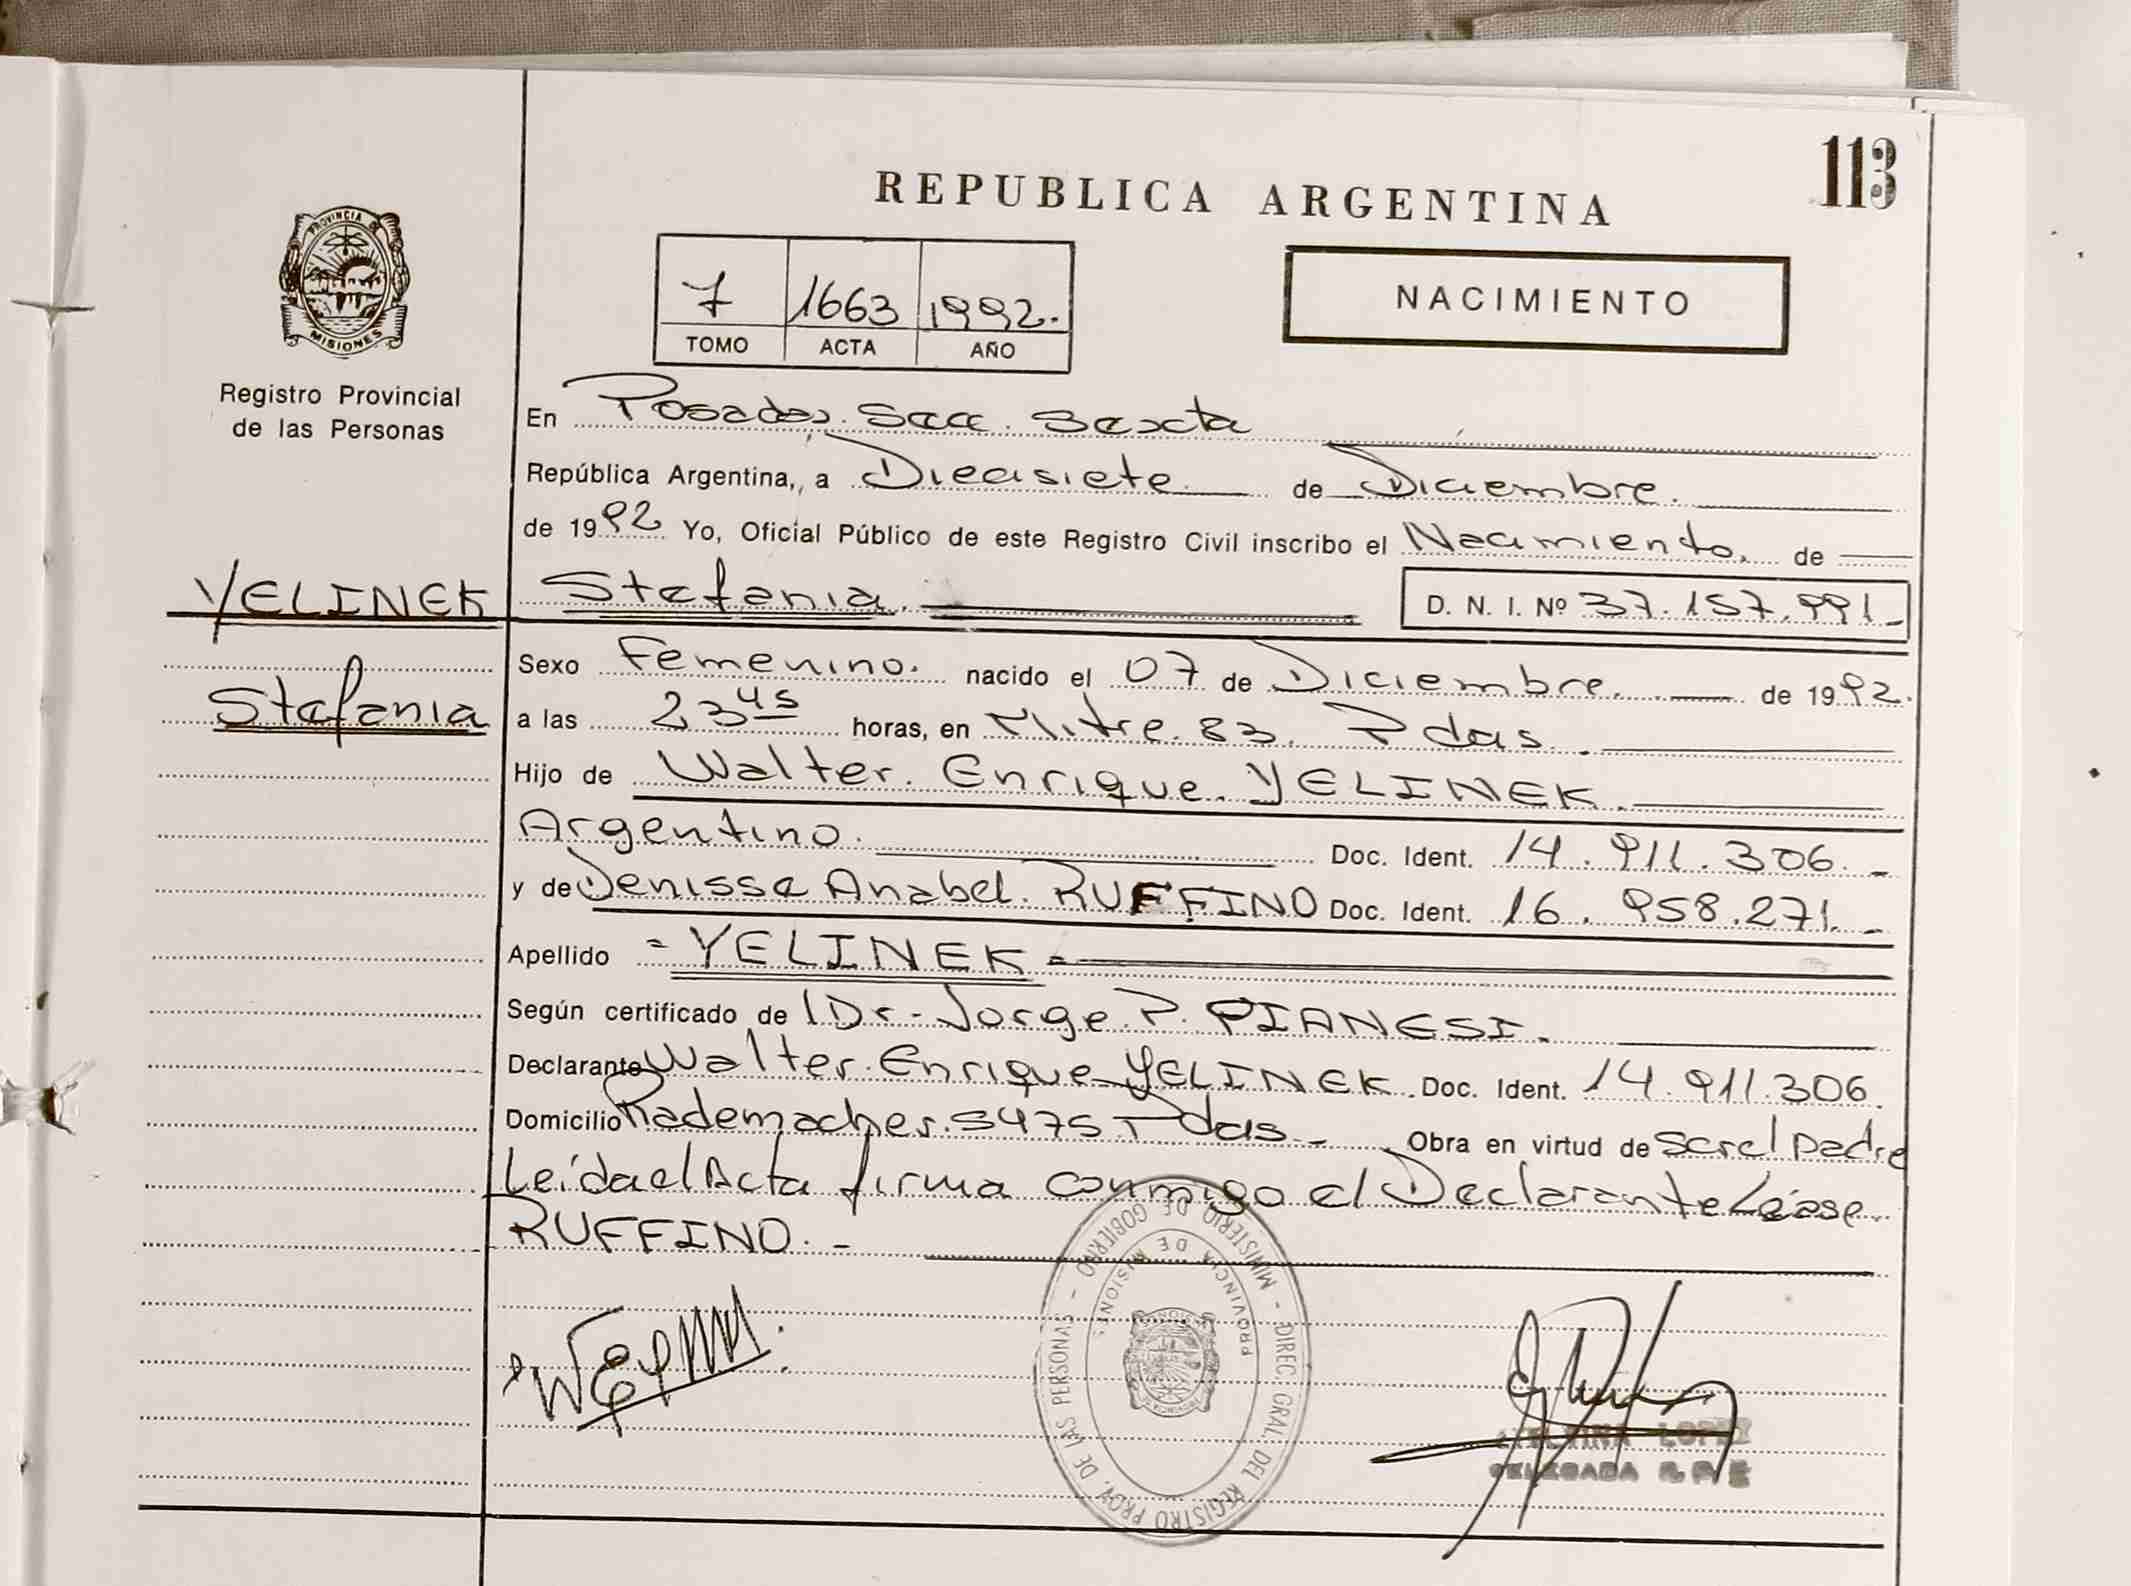 113
REPUBLICA ARGENTINA
PROVINCIA DE
MISIONES
Registro Provincial
de las Personas
7 1663 1992.
TOMO ACTA AÑO
NACIMIENTO
En Posadas. Secc. Sexta
República Argentina, a Diecisiete de Diciembre.
de 1992 Yo, Oficial Público de este Registro Civil inscribo el Nacimiento. de
YELINEK Stefania. D. N. I. Nº 37.157.991.-
Sexo Femenino. nacido el 07 de Diciembre. de 1992.
Stefania a las 23 45 horas, en Mitre. 83. Pdas.
Hijo de Walter. Enrique. YELINEK.
Argentino. Doc. Ident. 14.911.306.-
y de Denisse Anabel. RUFFINO Doc. Ident. 16.958.271.-
Apellido = YELINEK =
Según certificado de l Dr. Jorge. P. PIANESI.
Declarante Walter. Enrique YELINEK. Doc. Ident. 14.911.306.
Domicilio Rademacher. 5475 Pdas - Obra en virtud de ser el padre
Leída el Acta firma conmigo el Declarante Léase
RUFFINO. -
MINISTERIO DE GOBIERNO - DIREC. GRAL. DEL REGISTRO PROV. DE LAS PERSONAS -
PROVINCIA DE MISIONES
LOPEZ
DELEGADA